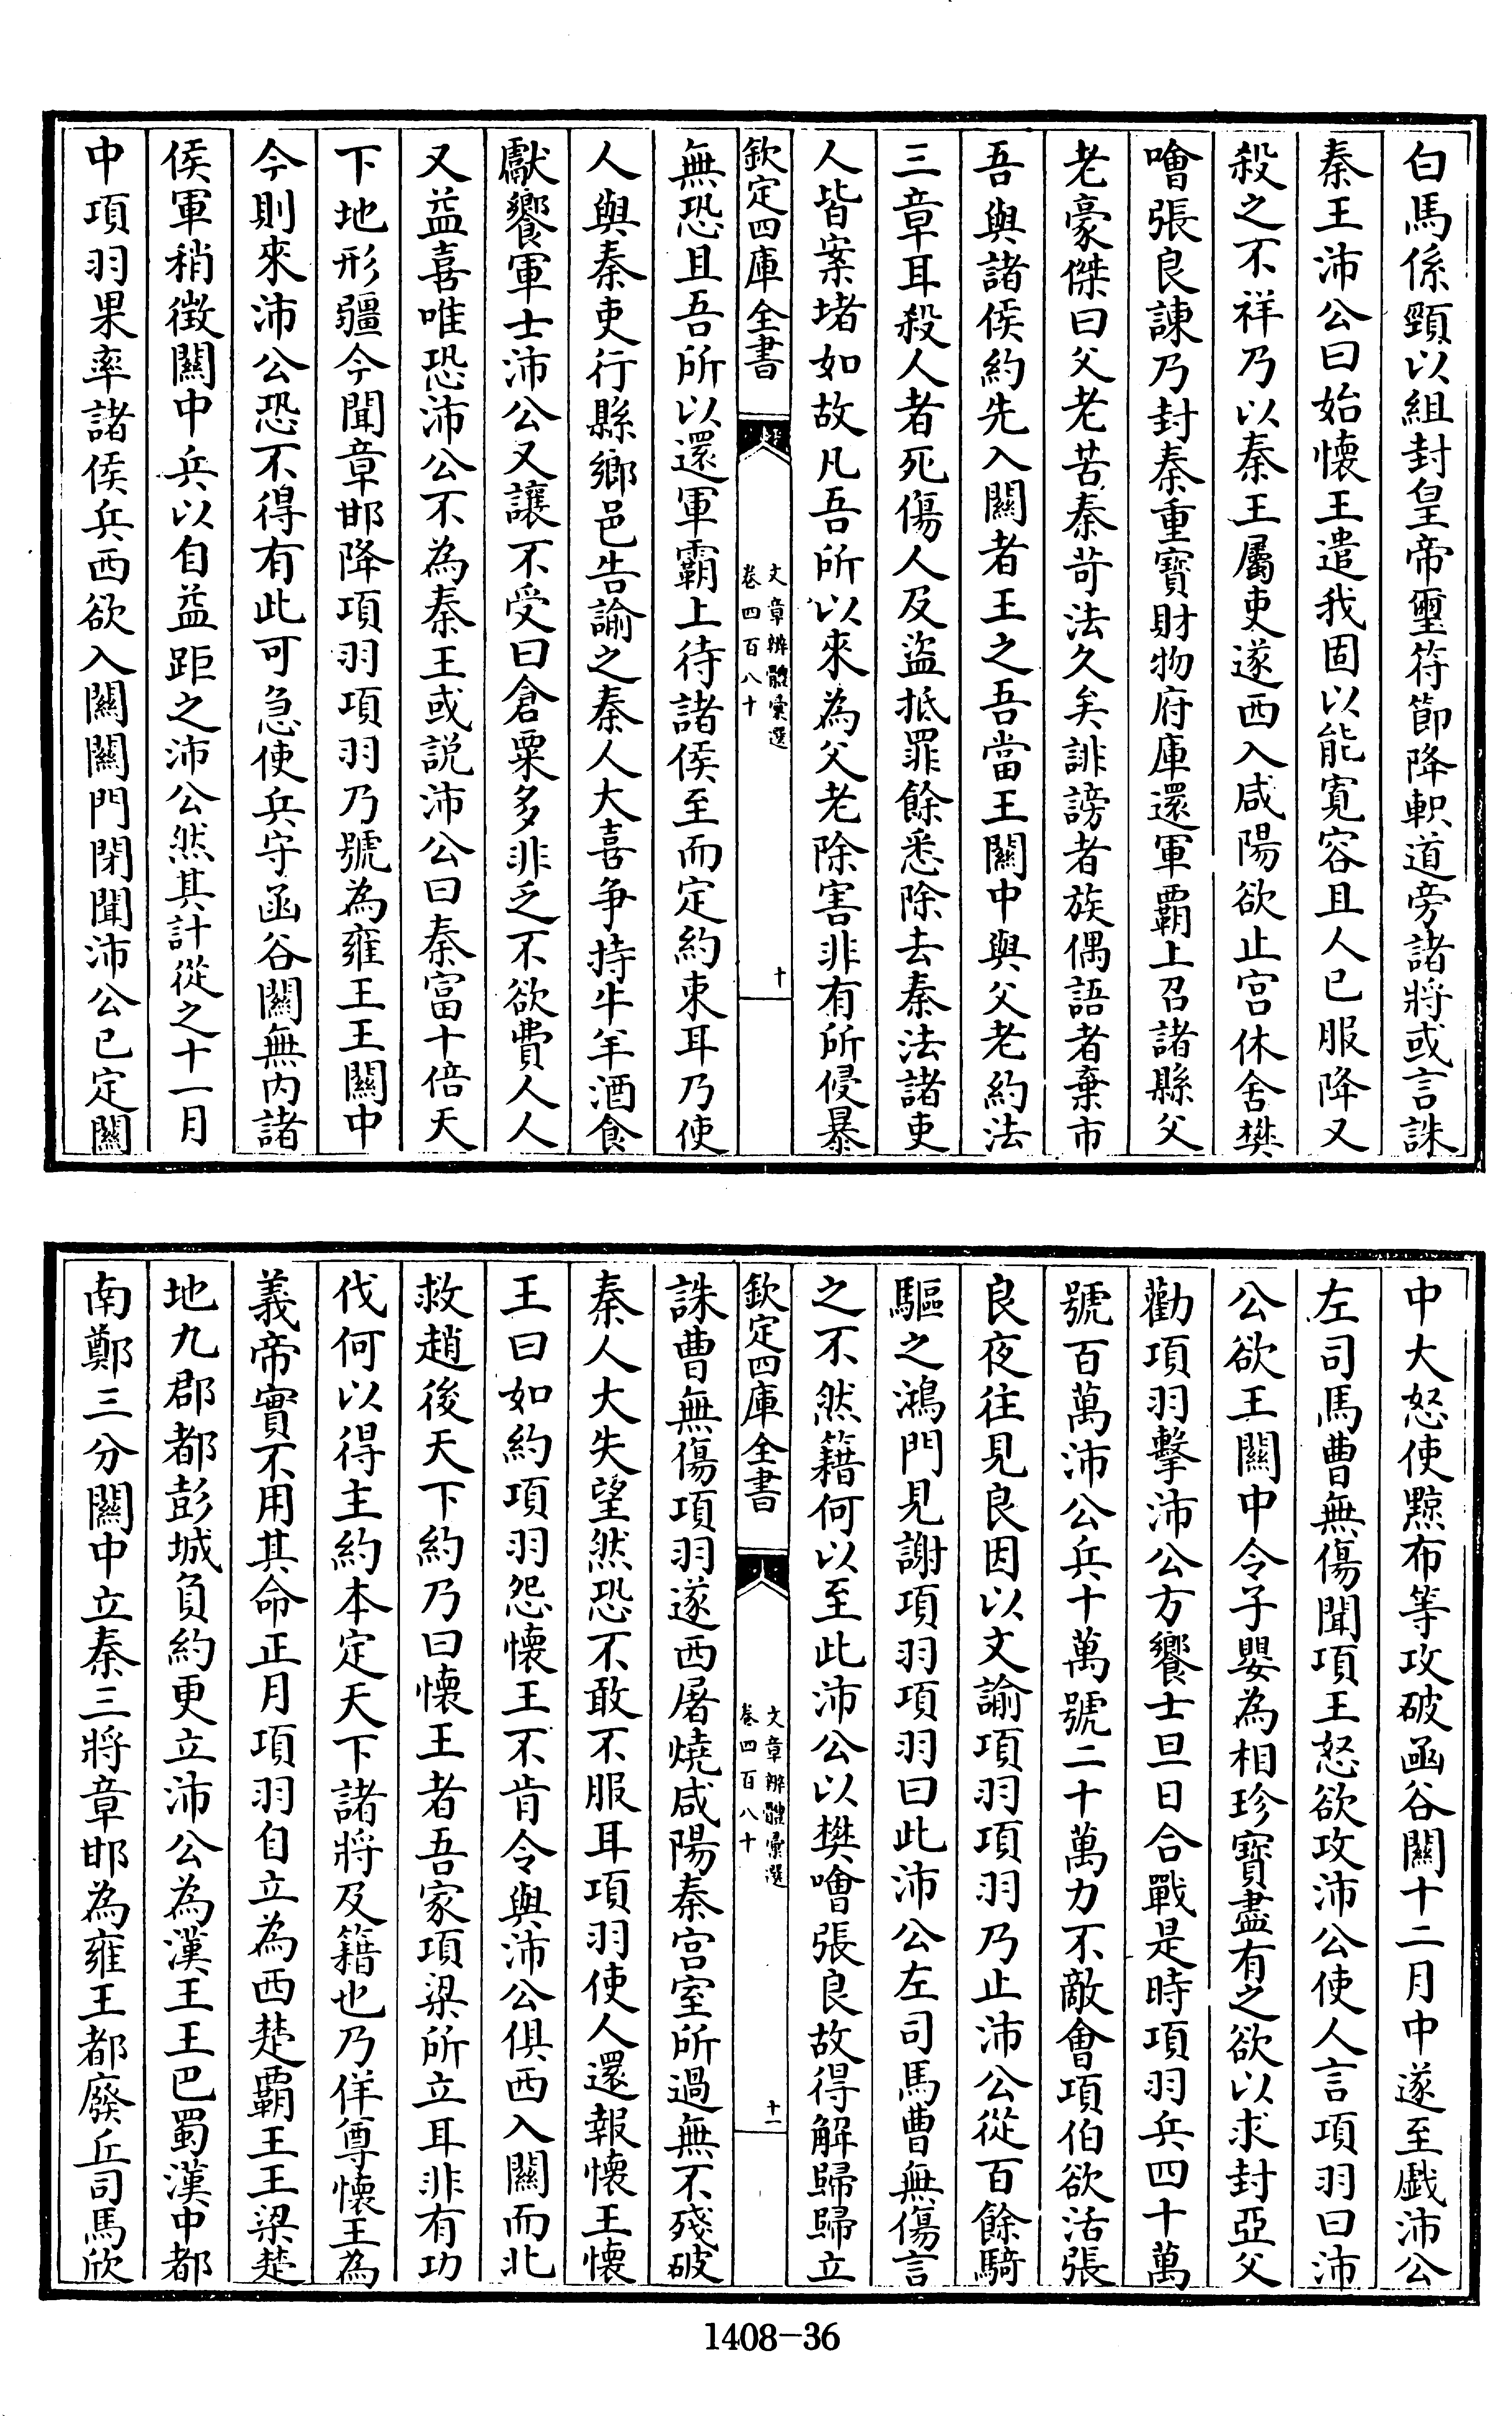 白馬係頸以組封皇帝璽符節降軹道旁諸將或言誅
秦王沛公曰始懷王遣我固以能寬容且人已服降又
殺之不祥乃以秦王屬吏遂西入咸陽欲止宫休舍樊
噲張良諫乃封秦重寳財物府庫還軍霸上召諸縣父
老豪傑曰父老苦秦苛法久矣誹謗者族偶語者棄市
吾與諸侯約先入關者王之吾當王關中與父老約法
三章耳殺人者死傷人及盜抵罪餘悉除去秦法諸吏
人皆案堵如故凡吾所以來為父老除害非有所侵暴
欽定四庫全書
文章辨體彙選
卷四百八十
十
無恐且吾所以還軍霸上待諸侯至而定約束耳乃使
人與秦吏行縣鄉邑告諭之秦人大喜争持牛羊酒食
獻饗軍士沛公又讓不受曰倉粟多非乏不欲費人人
又益喜唯恐沛公不為秦王或説沛公曰秦富十倍天
下地形疆今聞章邯降項羽項羽乃號為雍王王關中
今則來沛公恐不得有此可急使兵守函谷關無内諸
侯軍稍徴關中兵以自益距之沛公然其計從之十一月
中項羽果率諸侯兵西欲入關關門閉聞沛公已定關
中大怒使黥布等攻破函谷關十二月中遂至戯沛公
左司馬曹無傷聞項王怒欲攻沛公使人言項羽曰沛
公欲王關中令子嬰為相珍寳盡有之欲以求封亞父
勸項羽擊沛公方饗士旦日合戰是時項羽兵四十萬
號百萬沛公兵十萬號二十萬力不敵㑹項伯欲活張
良夜往見良因以文諭項羽項羽乃止沛公從百餘騎
驅之鴻門見謝項羽項羽曰此沛公左司馬曹無傷言
之不然籍何以至此沛公以樊噲張良故得解歸歸立
欽定四庫全書
文章辨體彙選
卷四百八十
十一
誅曹無傷項羽遂西屠燒咸陽秦宫室所過無不殘破
秦人大失望然恐不敢不服耳項羽使人還報懷王懷
王曰如約項羽怨懷王不肯令與沛公俱西入關而北
救趙後天下約乃曰懷王者吾家項梁所立耳非有功
伐何以得主約本定天下諸將及籍也乃佯尊懷王為
義帝實不用其命正月項羽自立為西楚霸王王梁楚
地九郡都彭城負約更立沛公為漢王王巴蜀漢中都
南鄭三分關中立秦三將章邯為雍王都廢丘司馬欣
1408-36